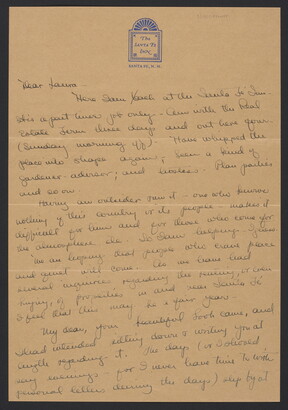 The
Santa Fe
Inn
SANTA FE, N. M.
Dear Laura —
Here I am back at the Santa Fe Inn.
It's a part time job only — I am with the Real
Estate firm three days and out here four.
(Sunday morning off). Have whipped the
place into shape again; been a kind of
gardener-advisor; and hostess. Plan parties
and so on.
Having an outsider run it — one who knows
nothing of this country or its people — makes it
difficult for him and for those who come for
the atmosphere etc. So I am helping.
I'm hoping that people who want peace
and quiet will come. We have had
several inquiries regarding the renting, or even
buying, of properties in and near Santa Fe
I feel that this may be a good year.
My dear, your beautiful book came, and
I had intended sitting down & writing you at
length regarding it. The days (or I should
say evenings — for I never have time to write
personal letters during the day) slip by &